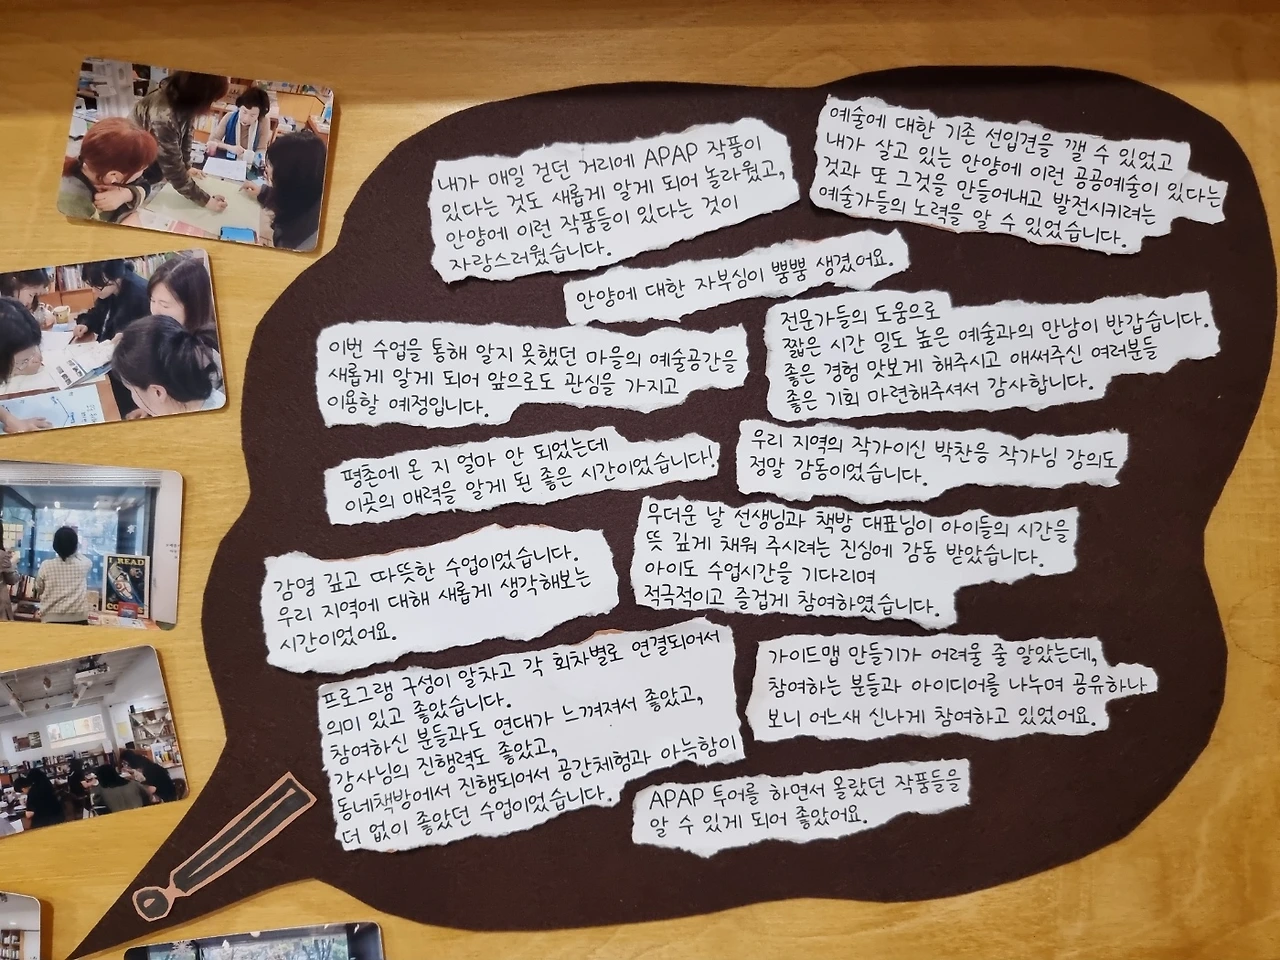 내가 매일 걷던 거리에 APAP 작품이
있다는 것도 새롭게 알게 되어 놀라웠고,
안양에 이런 작품들이 있다는 것이
자랑스러웠습니다.
예술에 대한 기존 선입견을 깰 수 있었고
내가 살고 있는 안양에 이런 공공예술이 있다는
것과 또 그것을 만들어내고 발전시키려는
예술가들의 노력을 알 수 있었습니다.
안양에 대한 자부심이 뿜뿜 생겼어요.
이번 수업을 통해 알지 못했던 마을의 예술공간을
새롭게 알게 되어 앞으로도 관심을 가지고
이용할 예정입니다.
전문가들의 도움으로
짧은 시간 밀도 높은 예술과의 만남이 반갑습니다.
좋은 경험 맛보게 해주시고 애써주신 여러분들
좋은 기회 마련해주셔서 감사합니다.
평촌에 온 지 얼마 안 되었는데
이곳의 매력을 알게 된 좋은 시간이었습니다!
우리 지역의 작가이신 박찬응 작가님 강의도
정말 감동이었습니다.
무더운 날 선생님과 책방 대표님이 아이들의 시간을
뜻 깊게 채워 주시려는 진심에 감동 받았습니다.
아이도 수업시간을 기다리며
적극적이고 즐겁게 참여하였습니다.
감명 깊고 따뜻한 수업이었습니다.
우리 지역에 대해 새롭게 생각해보는
시간이었어요.
프로그램 구성이 알차고 각 회차별로 연결되어서
의미 있고 좋았습니다.
참여하신 분들과도 연대가 느껴져서 좋았고,
강사님의 진행력도 좋았고,
동네책방에서 진행되어서 공간체험과 아늑함이
더 없이 좋았던 수업이었습니다.
가이드맵 만들기가 어려울 줄 알았는데,
참여하는 분들과 아이디어를 나누며 공유하나
보니 어느새 신나게 참여하고 있었어요.
APAP 투어를 하면서 몰랐던 작품들을
알 수 있게 되어 좋았어요.
I READ